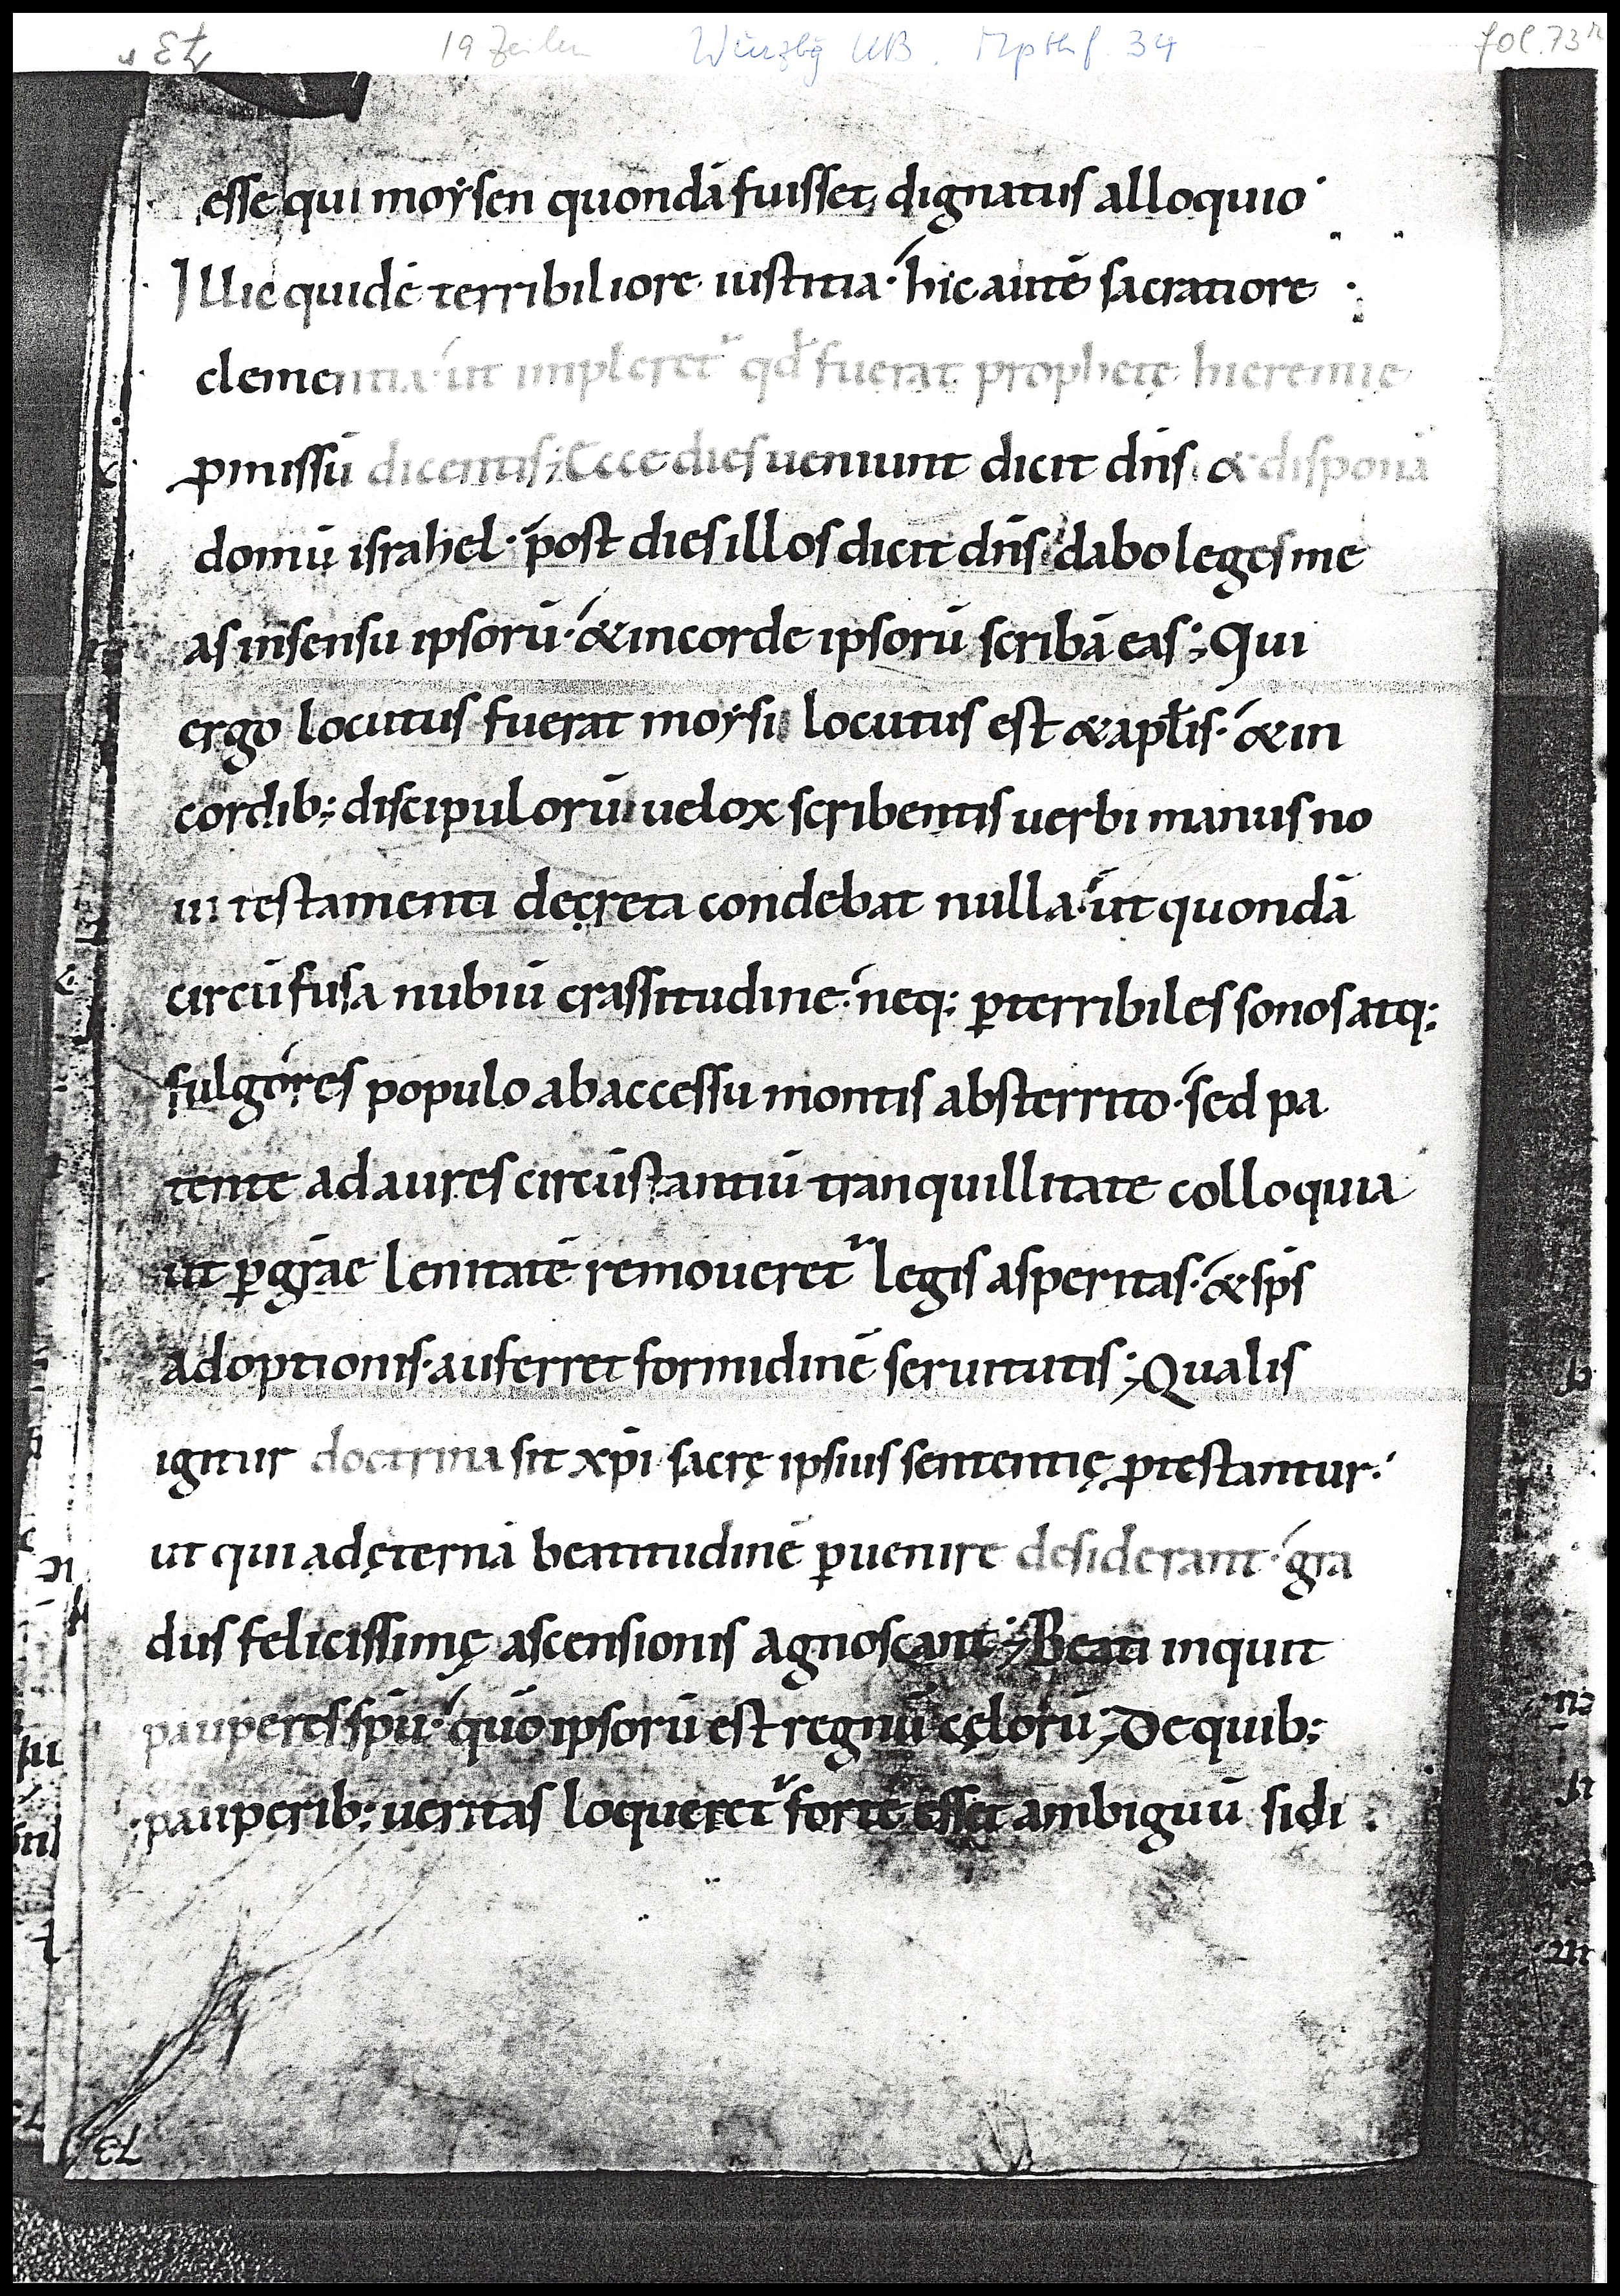 19 Zeilen Würzbg UB. Mpthf. 34 fol. 73r
esse qui moysen quondā fuisset, dignatus alloquio·
Illic quidē terribiliore iustitia· hic autē sacratiore
clementia· ut impleret᷑ qđ fuerat prophetę hieremię
ꝓmissū dicentis; Ecce dies ueniunt dicit dn̄s, & disponā
domū israhel· post dies illos dicit dn̄s dabo leges me
as in sensu ipsorū· & in corde ipsorū scribā eas; Qui
ergo locutus fuerat moysi, locutus est & apl̄is· & in
cordib; discipulorū uelox scribentis uerbi manus no
ui testamenti decreta condebat nulla· ut quondā
circūfusa nubiū crassitudine· neq; ꝑ terribiles sonos atq;
fulgores populo ab accessu montis absterrito· sed pa
tente ad aures circūstantiū tranquillitate colloquia
ut ꝑ gr̄ae lenitatē remoueret᷑ legis asperitas· & sp̄s
adoptionis· auferret formidinē seruitutis; Qualis
igitur doctrina sit xp̄i sacrę ipsius sententię ꝓtestantur·
ut qui ad ęternā beatitudinē ꝑuenire desiderant· gra
dus felicissimę ascensionis agnoscant; Beati inquit
pauperes sp̄u· quō ipsorū est regnū cęlorū; De quib;
pauperib; ueritas loqueret᷑ forte esset ambiguū si di
73